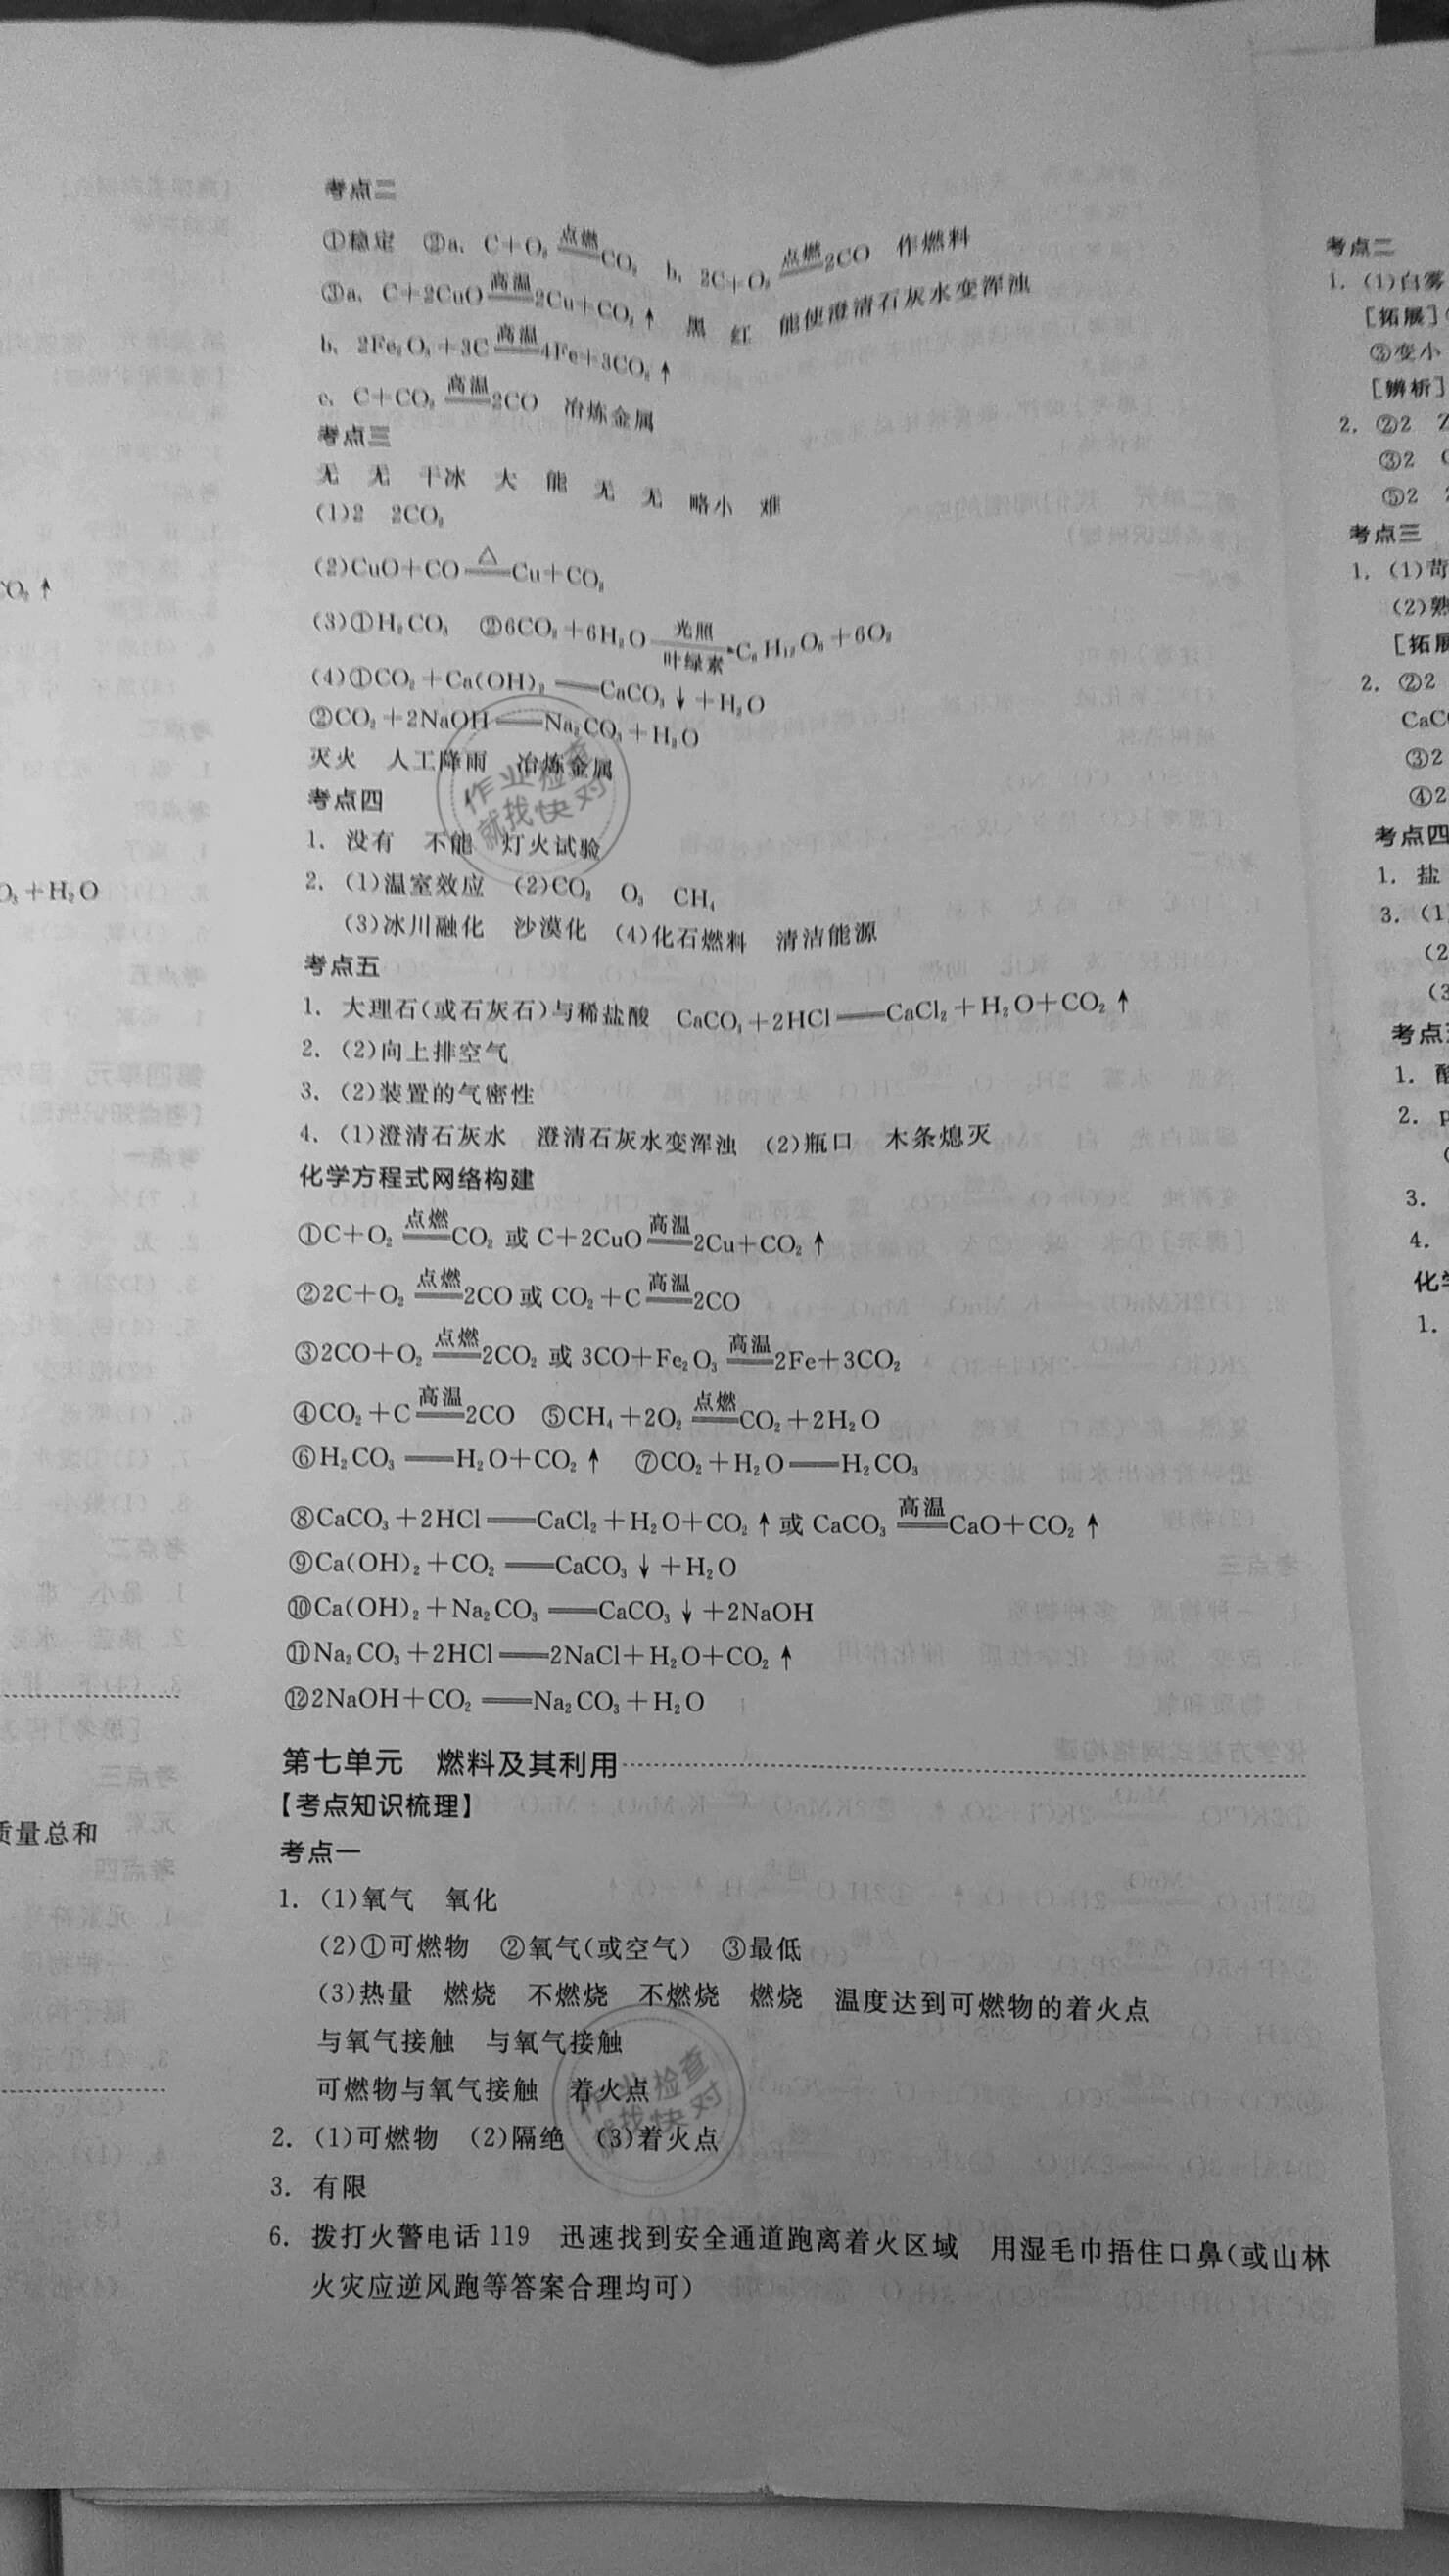 考点二
①稳定 ②a. C+O₂ 点燃══ CO₂ b. 2C+O₂ 点燃══ 2CO 作燃料
③a. C+2CuO 高温══ 2Cu+CO₂↑ 黑 红 能使澄清石灰水变浑浊
b. 2Fe₂O₃+3C 高温══ 4Fe+3CO₂↑
c. C+CO₂ 高温══ 2CO 冶炼金属
考点三
无 无 干冰 大 能 无 无 略小 难
(1)2 2CO₂
(2)CuO+CO △══ Cu+CO₂
(3)①H₂CO₃ ②6CO₂+6H₂O 光照──→叶绿素 C₆H₁₂O₆+6O₂
(4)①CO₂+Ca(OH)₂══CaCO₃↓+H₂O
②CO₂+2NaOH══Na₂CO₃+H₂O
灭火 人工降雨 冶炼金属
考点四
1. 没有 不能 灯火试验
2. (1)温室效应 (2)CO₂ O₃ CH₄
(3)冰川融化 沙漠化 (4)化石燃料 清洁能源
考点五
1. 大理石(或石灰石)与稀盐酸 CaCO₃+2HCl══CaCl₂+H₂O+CO₂↑
2. (2)向上排空气
3. (2)装置的气密性
4. (1)澄清石灰水 澄清石灰水变浑浊 (2)瓶口 木条熄灭
化学方程式网络构建
①C+O₂ 点燃══ CO₂ 或 C+2CuO 高温══ 2Cu+CO₂↑
②2C+O₂ 点燃══ 2CO 或 CO₂+C 高温══ 2CO
③2CO+O₂ 点燃══ 2CO₂ 或 3CO+Fe₂O₃ 高温══ 2Fe+3CO₂
④CO₂+C 高温══ 2CO ⑤CH₄+2O₂ 点燃══ CO₂+2H₂O
⑥H₂CO₃══H₂O+CO₂↑ ⑦CO₂+H₂O══H₂CO₃
⑧CaCO₃+2HCl══CaCl₂+H₂O+CO₂↑或 CaCO₃ 高温══ CaO+CO₂↑
⑨Ca(OH)₂+CO₂══CaCO₃↓+H₂O
⑩Ca(OH)₂+Na₂CO₃══CaCO₃↓+2NaOH
⑪Na₂CO₃+2HCl══2NaCl+H₂O+CO₂↑
⑫2NaOH+CO₂══Na₂CO₃+H₂O
第七单元 燃料及其利用
【考点知识梳理】
考点一
1. (1)氧气 氧化
(2)①可燃物 ②氧气(或空气) ③最低
(3)热量 燃烧 不燃烧 不燃烧 燃烧 温度达到可燃物的着火点
与氧气接触 与氧气接触
可燃物与氧气接触 着火点
2. (1)可燃物 (2)隔绝 (3)着火点
3. 有限
6. 拨打火警电话119 迅速找到安全通道跑离着火区域 用湿毛巾捂住口鼻(或山林
火灾应逆风跑等答案合理均可)
作业检查
就找快对
作业检查
就找快对
CO₂↑
O₃+H₂O
质量总和
考点二
1. (1)白雾
[拓展]
③变小
[辨析]
2. ②2
③2
⑤2
考点三
1. (1)苛
(2)熟
[拓展
2. ②2
CaC
③2
④2
考点四
1. 盐
3. (1
(2
(3
考点
1. 酸
2. p
3.
4.
化学
1.